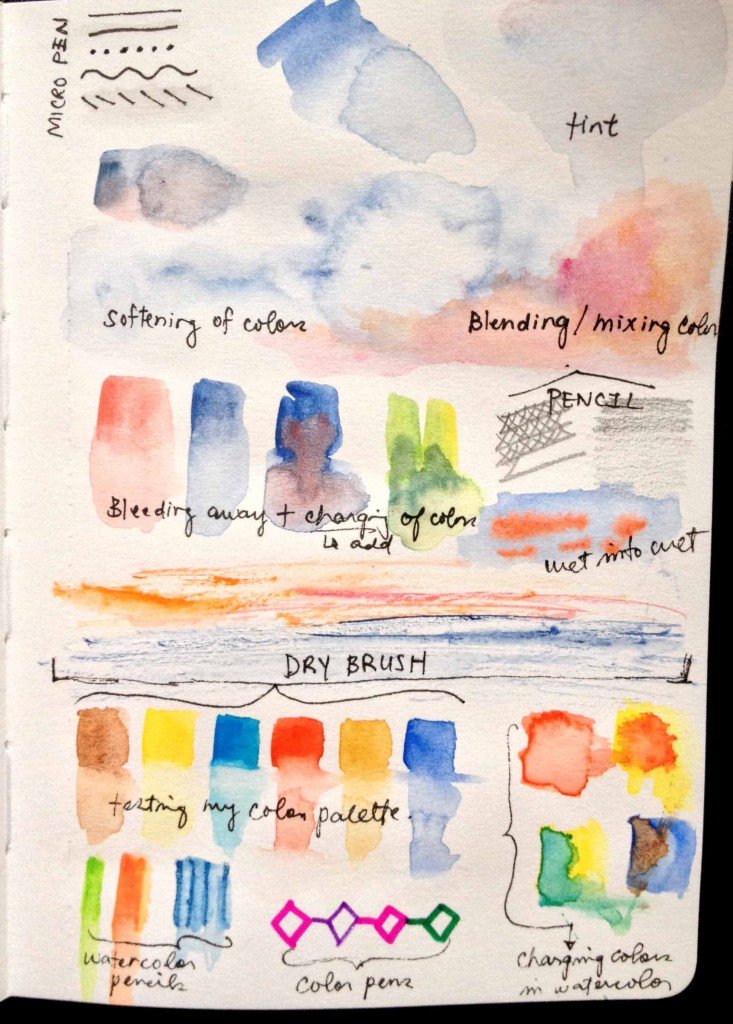 MICRO PEN
tint
Softening of colors
Blending/mixing color
PENCIL
Bleeding away + changing of colors
↳ add
wet into wet
DRY BRUSH
testing my color palette.
watercolor
pencils
color pens
changing colors
in watercolor